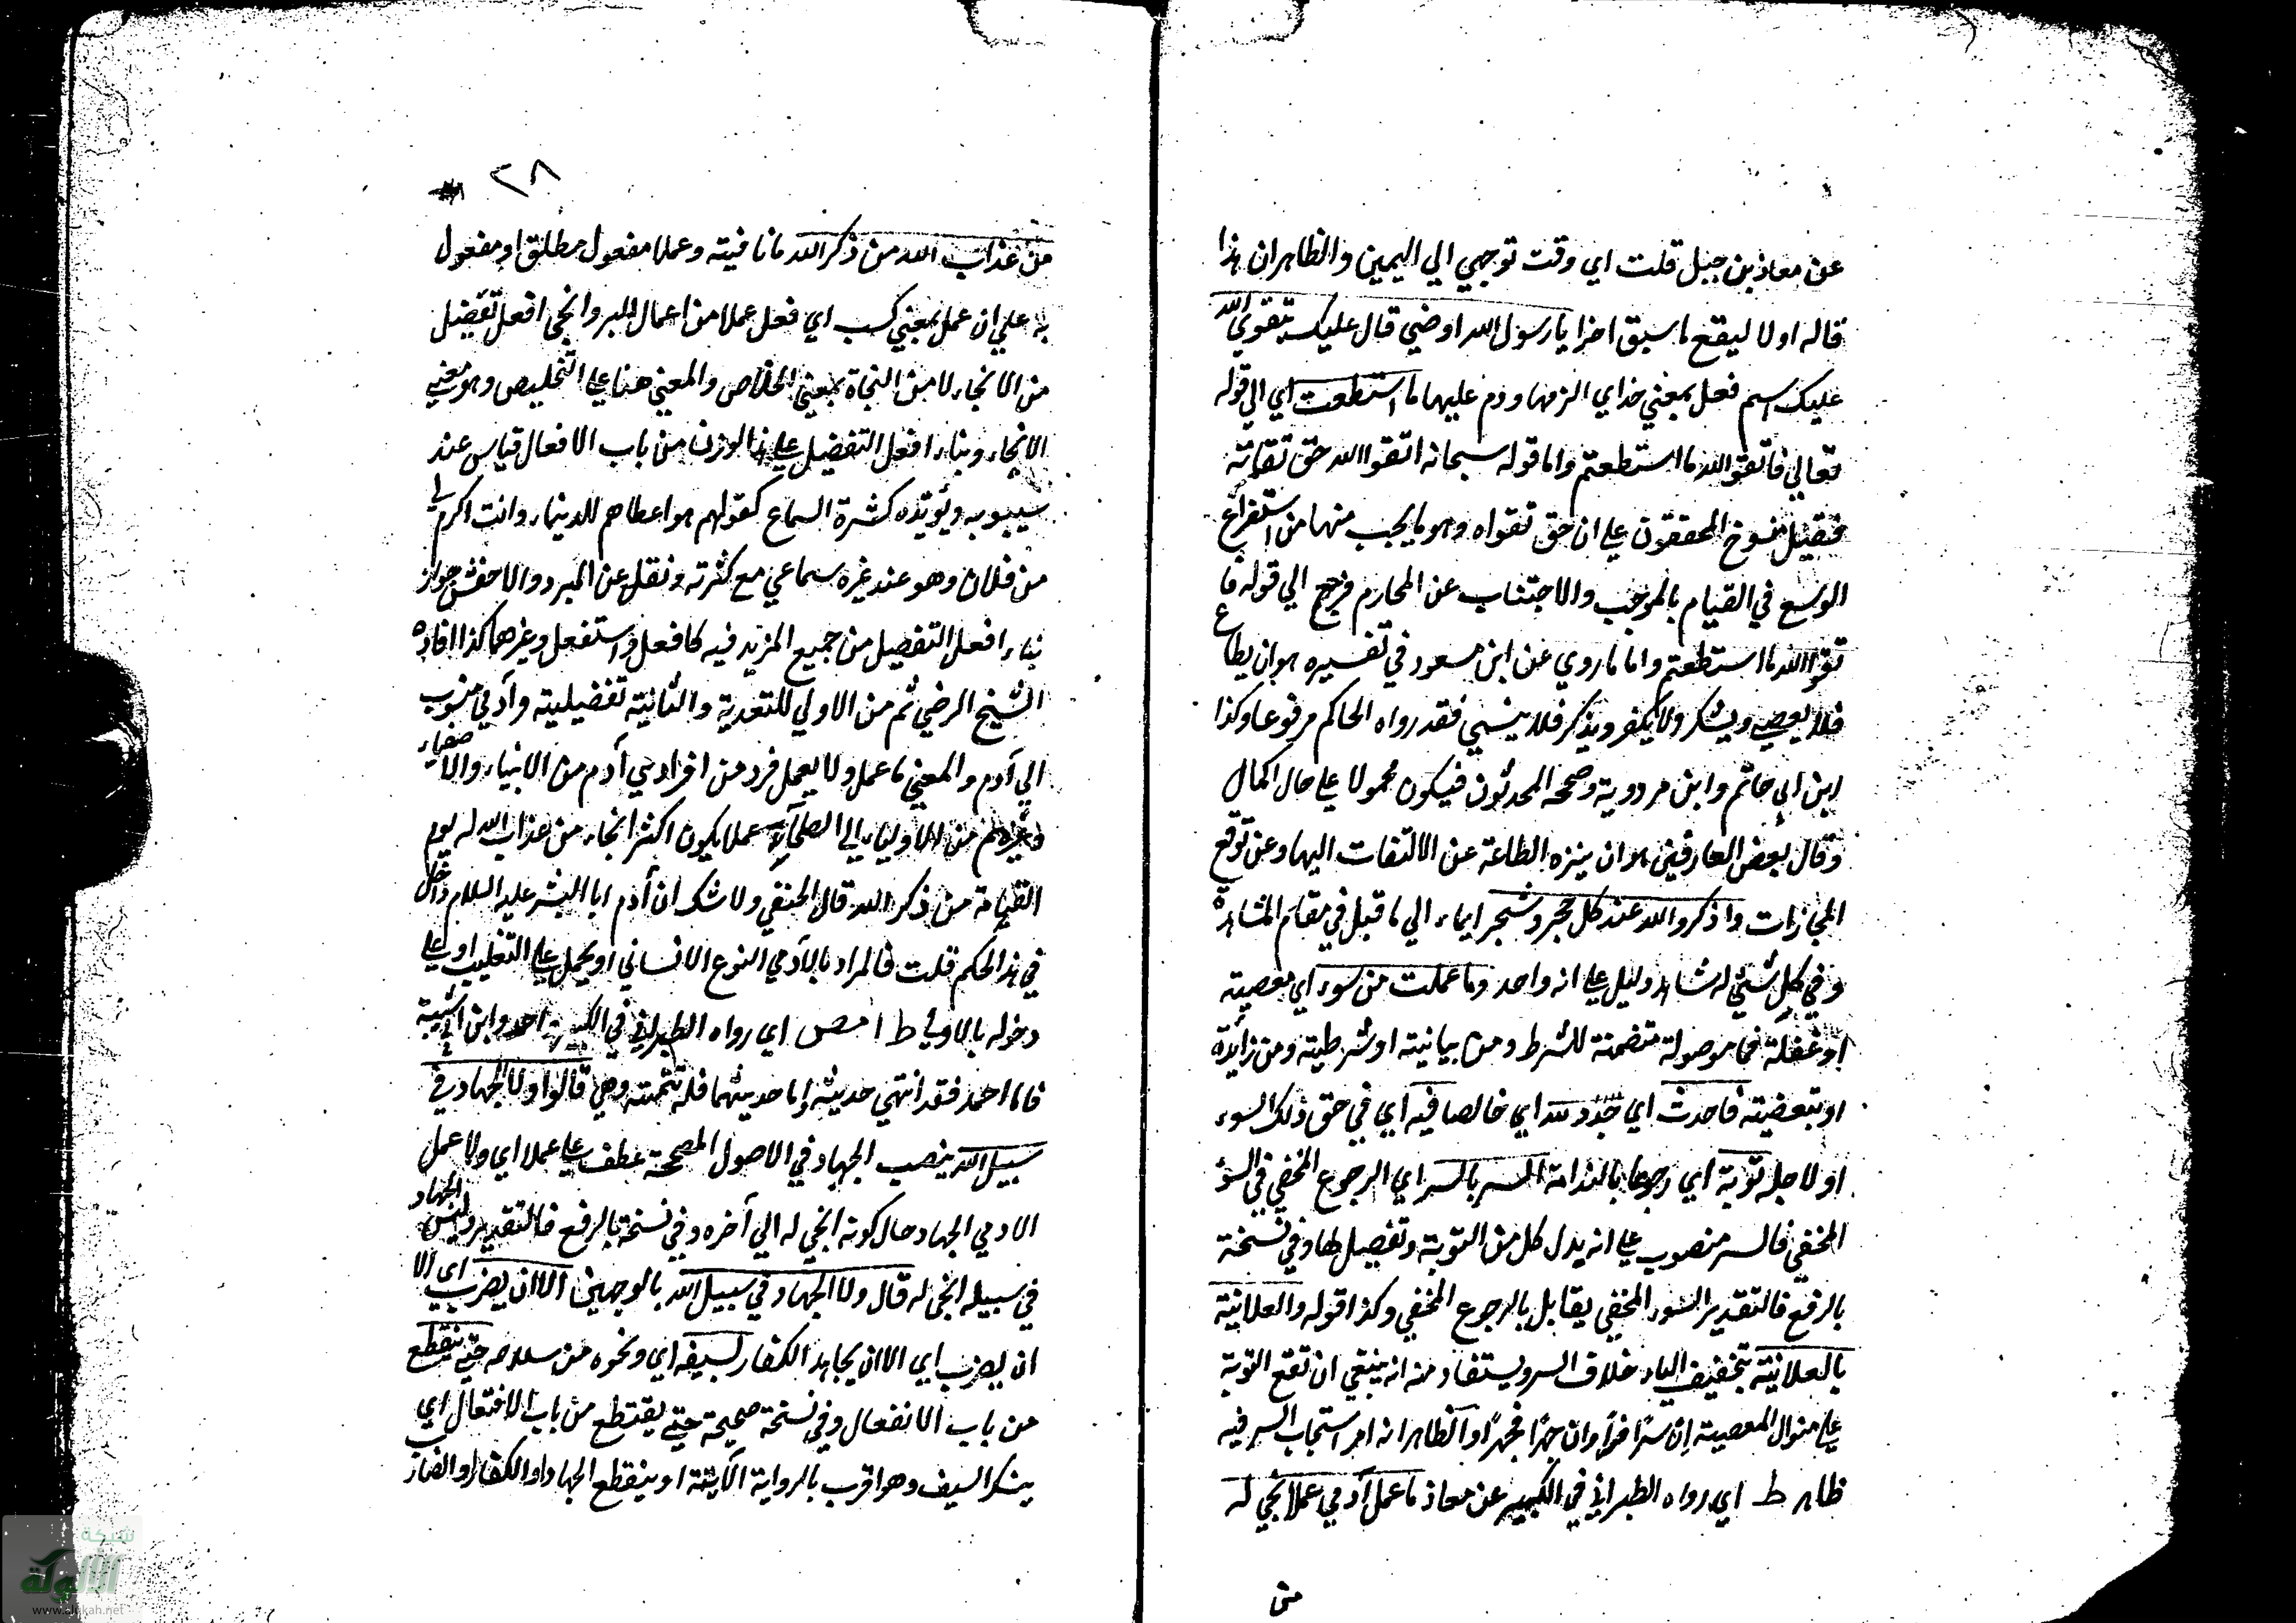 عن معاذ بن جبل قلت اي وقت توجهي الي اليمين والظاهر ان هذا
قاله اولا ليقع ما سبق اخرا يا رسول الله اوصني قال عليك بتقوي الله
عليك اسم فعل بمعني خذ اي الزمها ودم عليها ما استطعت اي الي قوله
تعالي فاتقوا الله ما استطعتم واما قوله سبحانه اتقوا الله حق تقاته
فقيل منسوخ المحققون علي ان حق تقواه وهو ما يجب منها من استفراغ
الوسع في القيام بالموجب والاجتناب عن المحارم فرجع الي قوله فا
تقوا الله ما استطعتم واما ما روي عن ابن مسعود في تفسيره هو ان يطاع
فلا يعصي ويشكر ولا يكفر ويذكر فلا ينسي فقد رواه الحاكم مرفوعا وكذا
ابن ابي حاتم وابن مردوية وصححه المحدثون فيكون محمولا علي حال الكمال
وقال بعض العارفين هو ان ينزه الطاعة عن الالتفات اليها وعن توقع
المجازات واذكروا الله عند كل حجر وشجر ايماء الي ما قيل في مقام المشاهدة
وفي كل شئي له شاهد دليل علي انه واحد وما عملت من سوء اي معصيته
او غفلة فما موصولة متضمنة للشرط ومن بيانيته او شرطيته ومن زائدة
او تبعضيته فاحدث اي جدد لله اي خالصا فيه اي في حق ذلك السوء
او لاجله توبة اي رجوعا بالندامة السر بالسر اي الرجوع المخفي في السوء
المخفي فالسر منصوب علي انه بدل كل من التوبة وتفصيل لها وفي نسخة
بالرفع فالتقدير السوء المخفي يقابل بالرجوع المخفي وكذا قوله والعلانية
بالعلانيته بتخفيف الياء خلاف السر ويستفاد منه انه ينبغي ان تقع التوبة
علي منوال المعصية ان سرا فسرا وان جهرا فجهرا والظاهر انه امر استجاب السر فيه
ظاهر ط اي رواه الطبراني في الكبير عن معاذ ما عمل آدمي عملا انجي له
من
٢٨
من عذاب الله من ذكر الله ما نافيته وعملا مفعول مطلق او مفعول
به علي ان عمل بمعني كسب اي فعل عملا من اعمال البر وانجي افعل تفضيل
من الانجاء لا من النجاة بمعني الخلاص والمعني هنا علي التخليص وهو معني
الانجاء وبناء افعل التفضيل علي هذا الوزن من باب الافعال قياس عند
سيبويه ويؤيده كثرة السماع كقولهم هو اعطاهم للدينار وانت اكرم لي
من فلان وهو عند غيره سماعي مع كثرته ونقل عن المبرد والاخفش جواز
بناء افعل التفضيل من جميع المزيد فيه كافعل واستفعل وغيرهما كذا افاده
الشيخ الرضي ثم من الاولي للتعدية والثانيته تفضيليته وآدمي منسوب
الي آدم والمعني ما عمل ولا يعمل فرد من افراد بني آدم من الانبياء والاصفياء
وغيرهم من الاولياء الي الصلحاء عملا يكون اكثر انجاء من عذاب الله له يوم
القيامة من ذكر الله قال الحنفي ولا شك ان آدم ابا البشر عليه السلام داخل
في هذا الحكم قلت فالمراد بالآدمي النوع الانساني او يحمل علي التغليب او علي
دخوله بالاولي ط ا مص اي رواه الطبراني في الكبير واحمد وابن ابي شيبة
فاما احمد فقد انتهي حديثه اما حديثهما فله تتمته وهي قالوا ولا الجهاد في
سبيل الله بنصب الجهاد في الاصول المصححة عطف علي عملا اي ولا عمل
الادمي الجهاد حال كونه انجي له الي آخره وفي نسخة بالرفع فالتقدير وليس الجهاد
في سبيله انجي له قال ولا الجهاد في سبيل الله بالوجهين الا ان يضرب اي الا
ان يضرب اي الا ان يجاهد الكفار بسيفه اي ونحوه من سلاحه حتي ينقطع
من باب الانفعال وفي نسخة صحيحة حتي يقتطع من باب الافتعال اي
ينكسر السيف وهو اقرب بالرواية الآتية او ينقطع الجهاد او الكفار او الضارب
شبكة
الألوكة
www.alukah.net